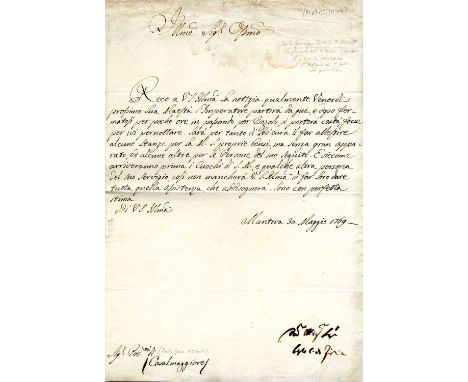 Illmo Sigr Ossmo
Reco a V.S. Illma la notizia qualmente Venerdì
prossimo Sua Maestà l'Imperatore partirà da qui, e dopo fer-
matosi per poche ore in passando per Bozolo si porterà costà forse
per ivi pernottare. Sarà per tanto di Lei cura il far allestire
alcune Stanze per la M. S. proprie bensì, ma senza gran appa-
rato, ed alcune altre per le Persone del suo Seguito. E siccome
arriveranno prima i Cuochi di S. M. e qualche altra persona
del suo Servigio, così non mancherà V.S. Illma di far loro dare
tutta quella assistenza che abbisognerà. Sono con perfetta
stima
Di V.S. Illma
Mantova 30. Maggio 1769
Sigr Podtà di
Casalmaggiore